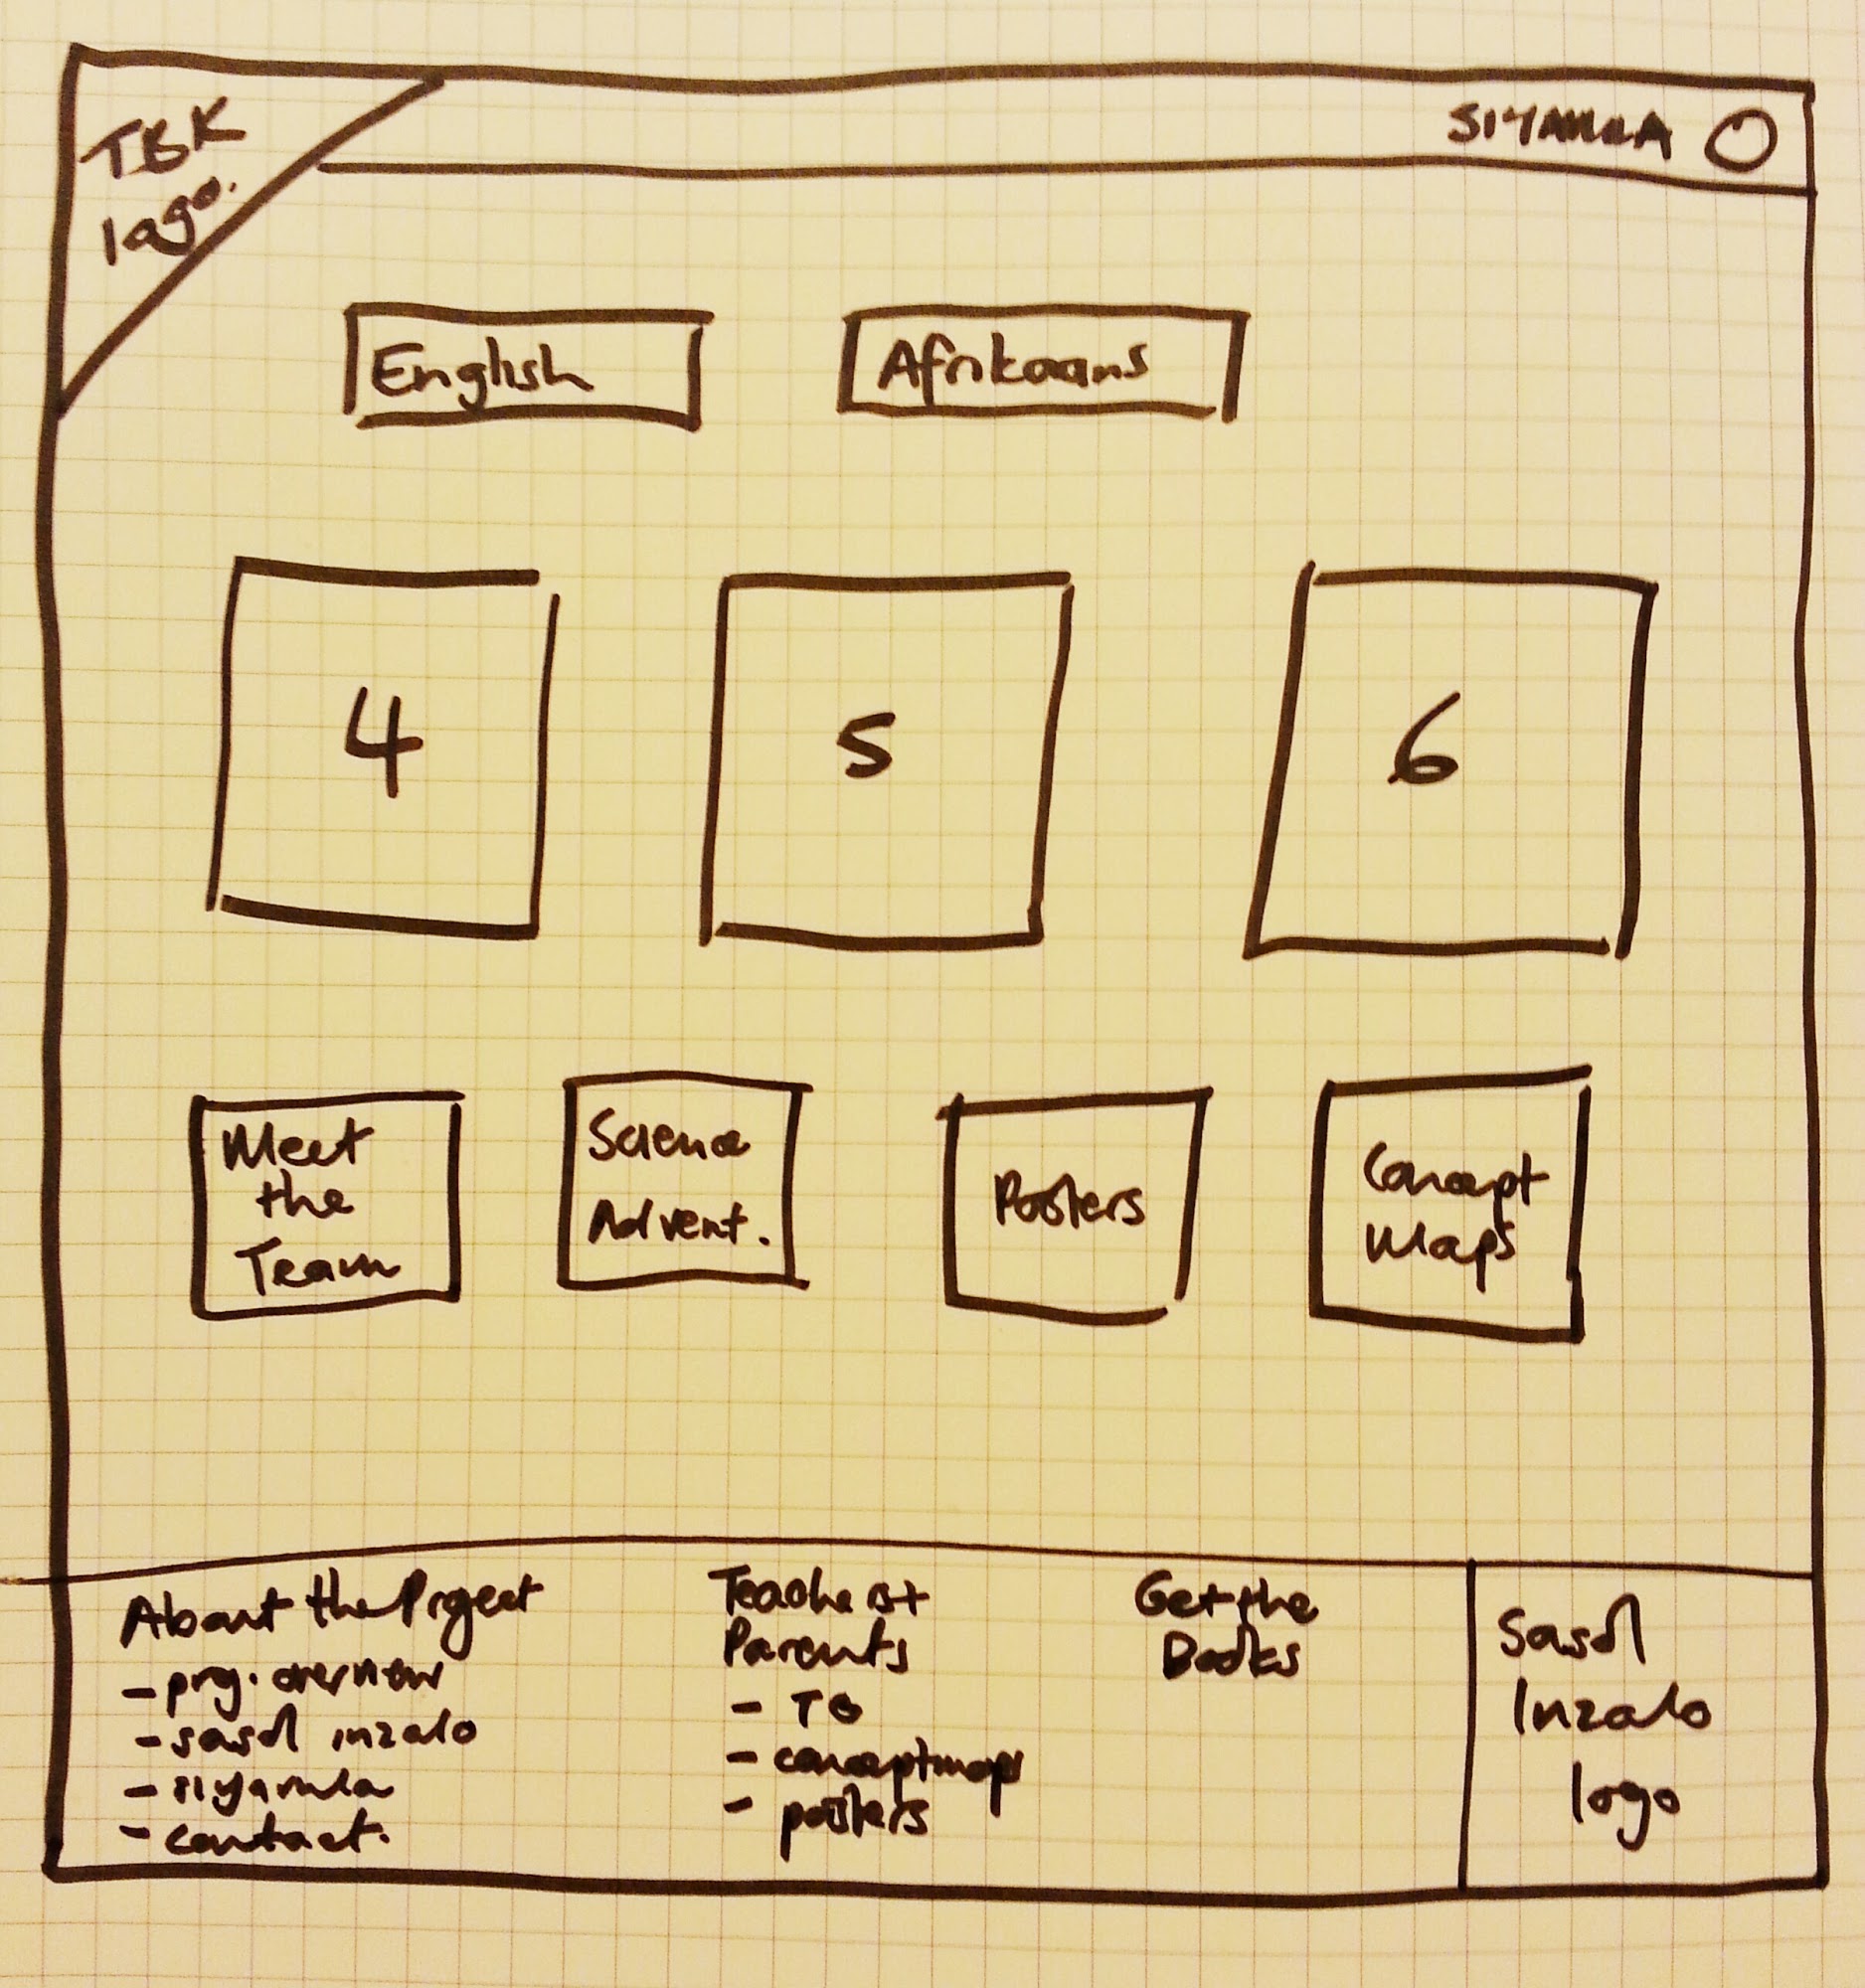 TBK
logo.
SIYAVULA
English
Afrikaans
4
5
6
Meet
the
Team
Science
Advent.
Posters
Concept
Maps
About the Project
- proj. overview
- sasol inzalo
- siyavula
- contact.
Teachers +
Parents
- TG
- concept maps
- posters
Get the
Books
Sasol
Inzalo
logo